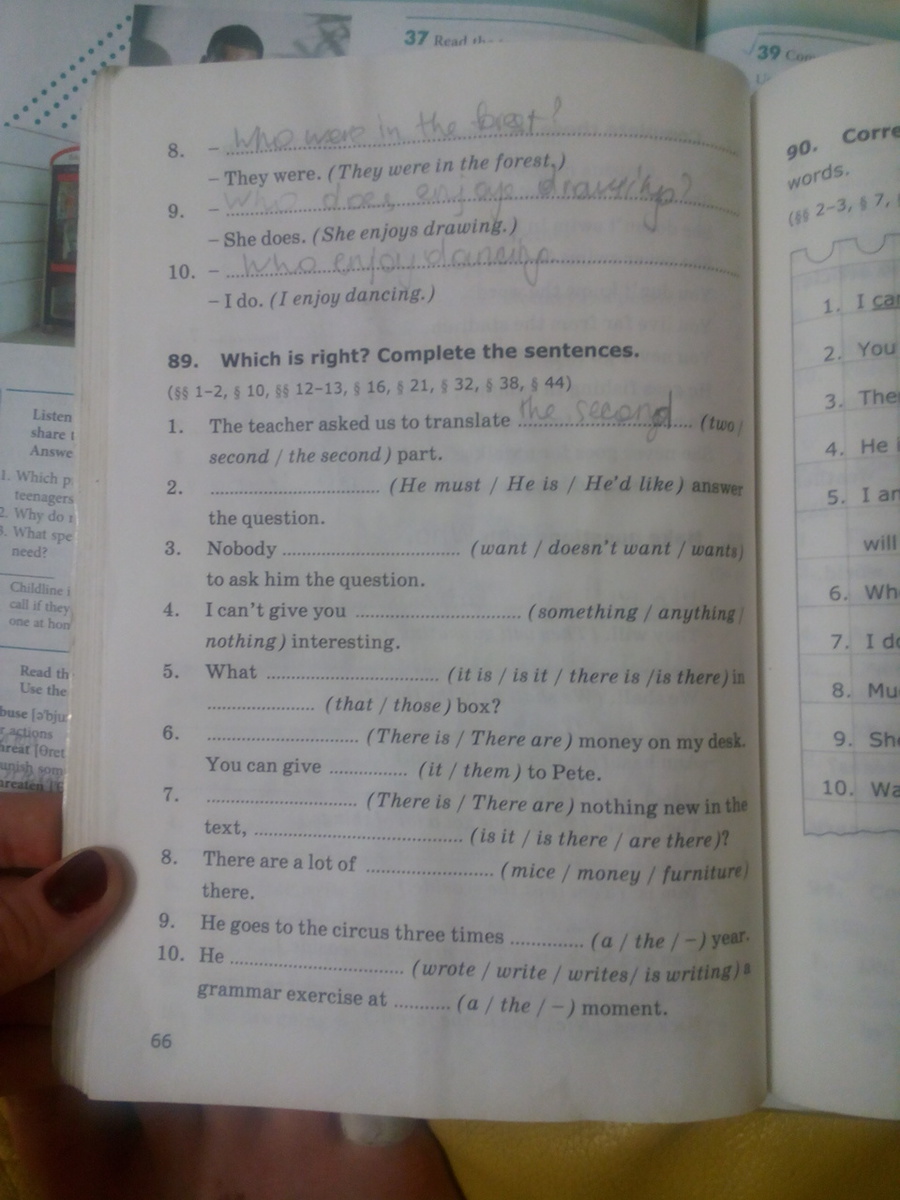 37 Read the
39 Com
8. – Who were in the forest?
– They were. (They were in the forest.)
9. – Who does enjoye drawing?
– She does. (She enjoys drawing.)
10. – Who enjoy dancing
– I do. (I enjoy dancing.)
89. Which is right? Complete the sentences.
(§§ 1–2, § 10, §§ 12–13, § 16, § 21, § 32, § 38, § 44)
1. The teacher asked us to translate the second (two /
second / the second) part.
2. .............................. (He must / He is / He'd like) answer
the question.
3. Nobody .............................. (want / doesn't want / wants)
to ask him the question.
4. I can't give you .............................. (something / anything /
nothing) interesting.
5. What .............................. (it is / is it / there is /is there) in
.................. (that / those) box?
6. .......................... (There is / There are) money on my desk.
You can give ............. (it / them) to Pete.
7. .......................... (There is / There are) nothing new in the
text, .................................... (is it / is there / are there)?
8. There are a lot of ...................... (mice / money / furniture)
there.
9. He goes to the circus three times ............. (a / the / –) year.
10. He .............................. (wrote / write / writes/ is writing) a
grammar exercise at .......... (a / the / –) moment.
66
Listen
share
Answe
1. Which p
teenagers
2. Why do
3. What spe
need?
Childline i
call if they
one at hom
Read th
Use the
buse [ə'bju:
r actions
hreat [θret
unish som
hreaten
90. Corre
words.
(§§ 2–3, § 7,
1. I can
2. You
3. The
4. He i
5. I am
will
6. Wh
7. I do
8. Mu
9. She
10. Wa